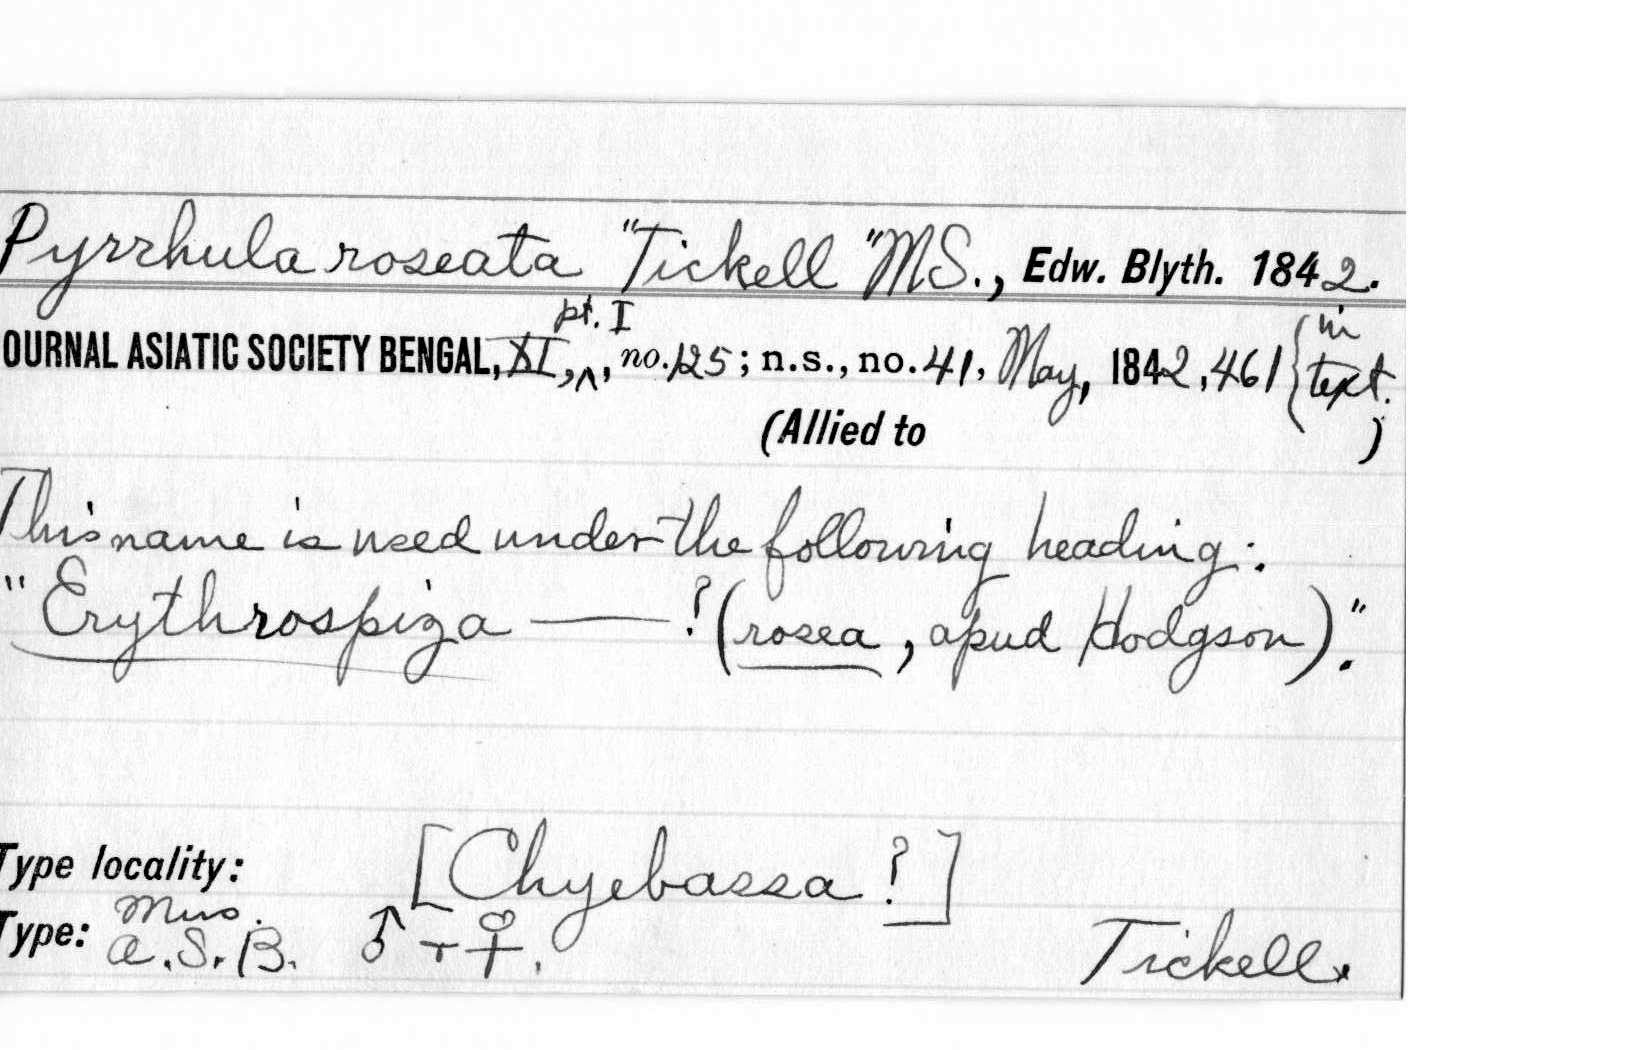 Pyrrhula roseata "Tickell" MS., Edw. Blyth. 1842.
pt. I
OURNAL ASIATIC SOCIETY BENGAL, XI, ^, no. 125; n.s., no. 41, May, 1842, 461 { in text.
(Allied to )
This name is used under the following heading:
"Erythrospiza —— ? (rosea, apud Hodgson)".
Type locality: [Chyebassa ?]
Type: Mus. A.S.B. ♂ + ♀. Tickell.